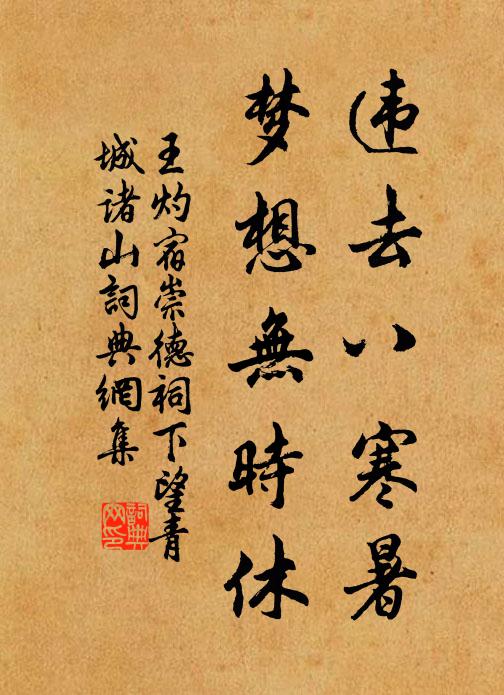 违去八寒暑
梦想無時休
王灼宿崇德祠下望青
城诸山詞典網集
詞典
网印